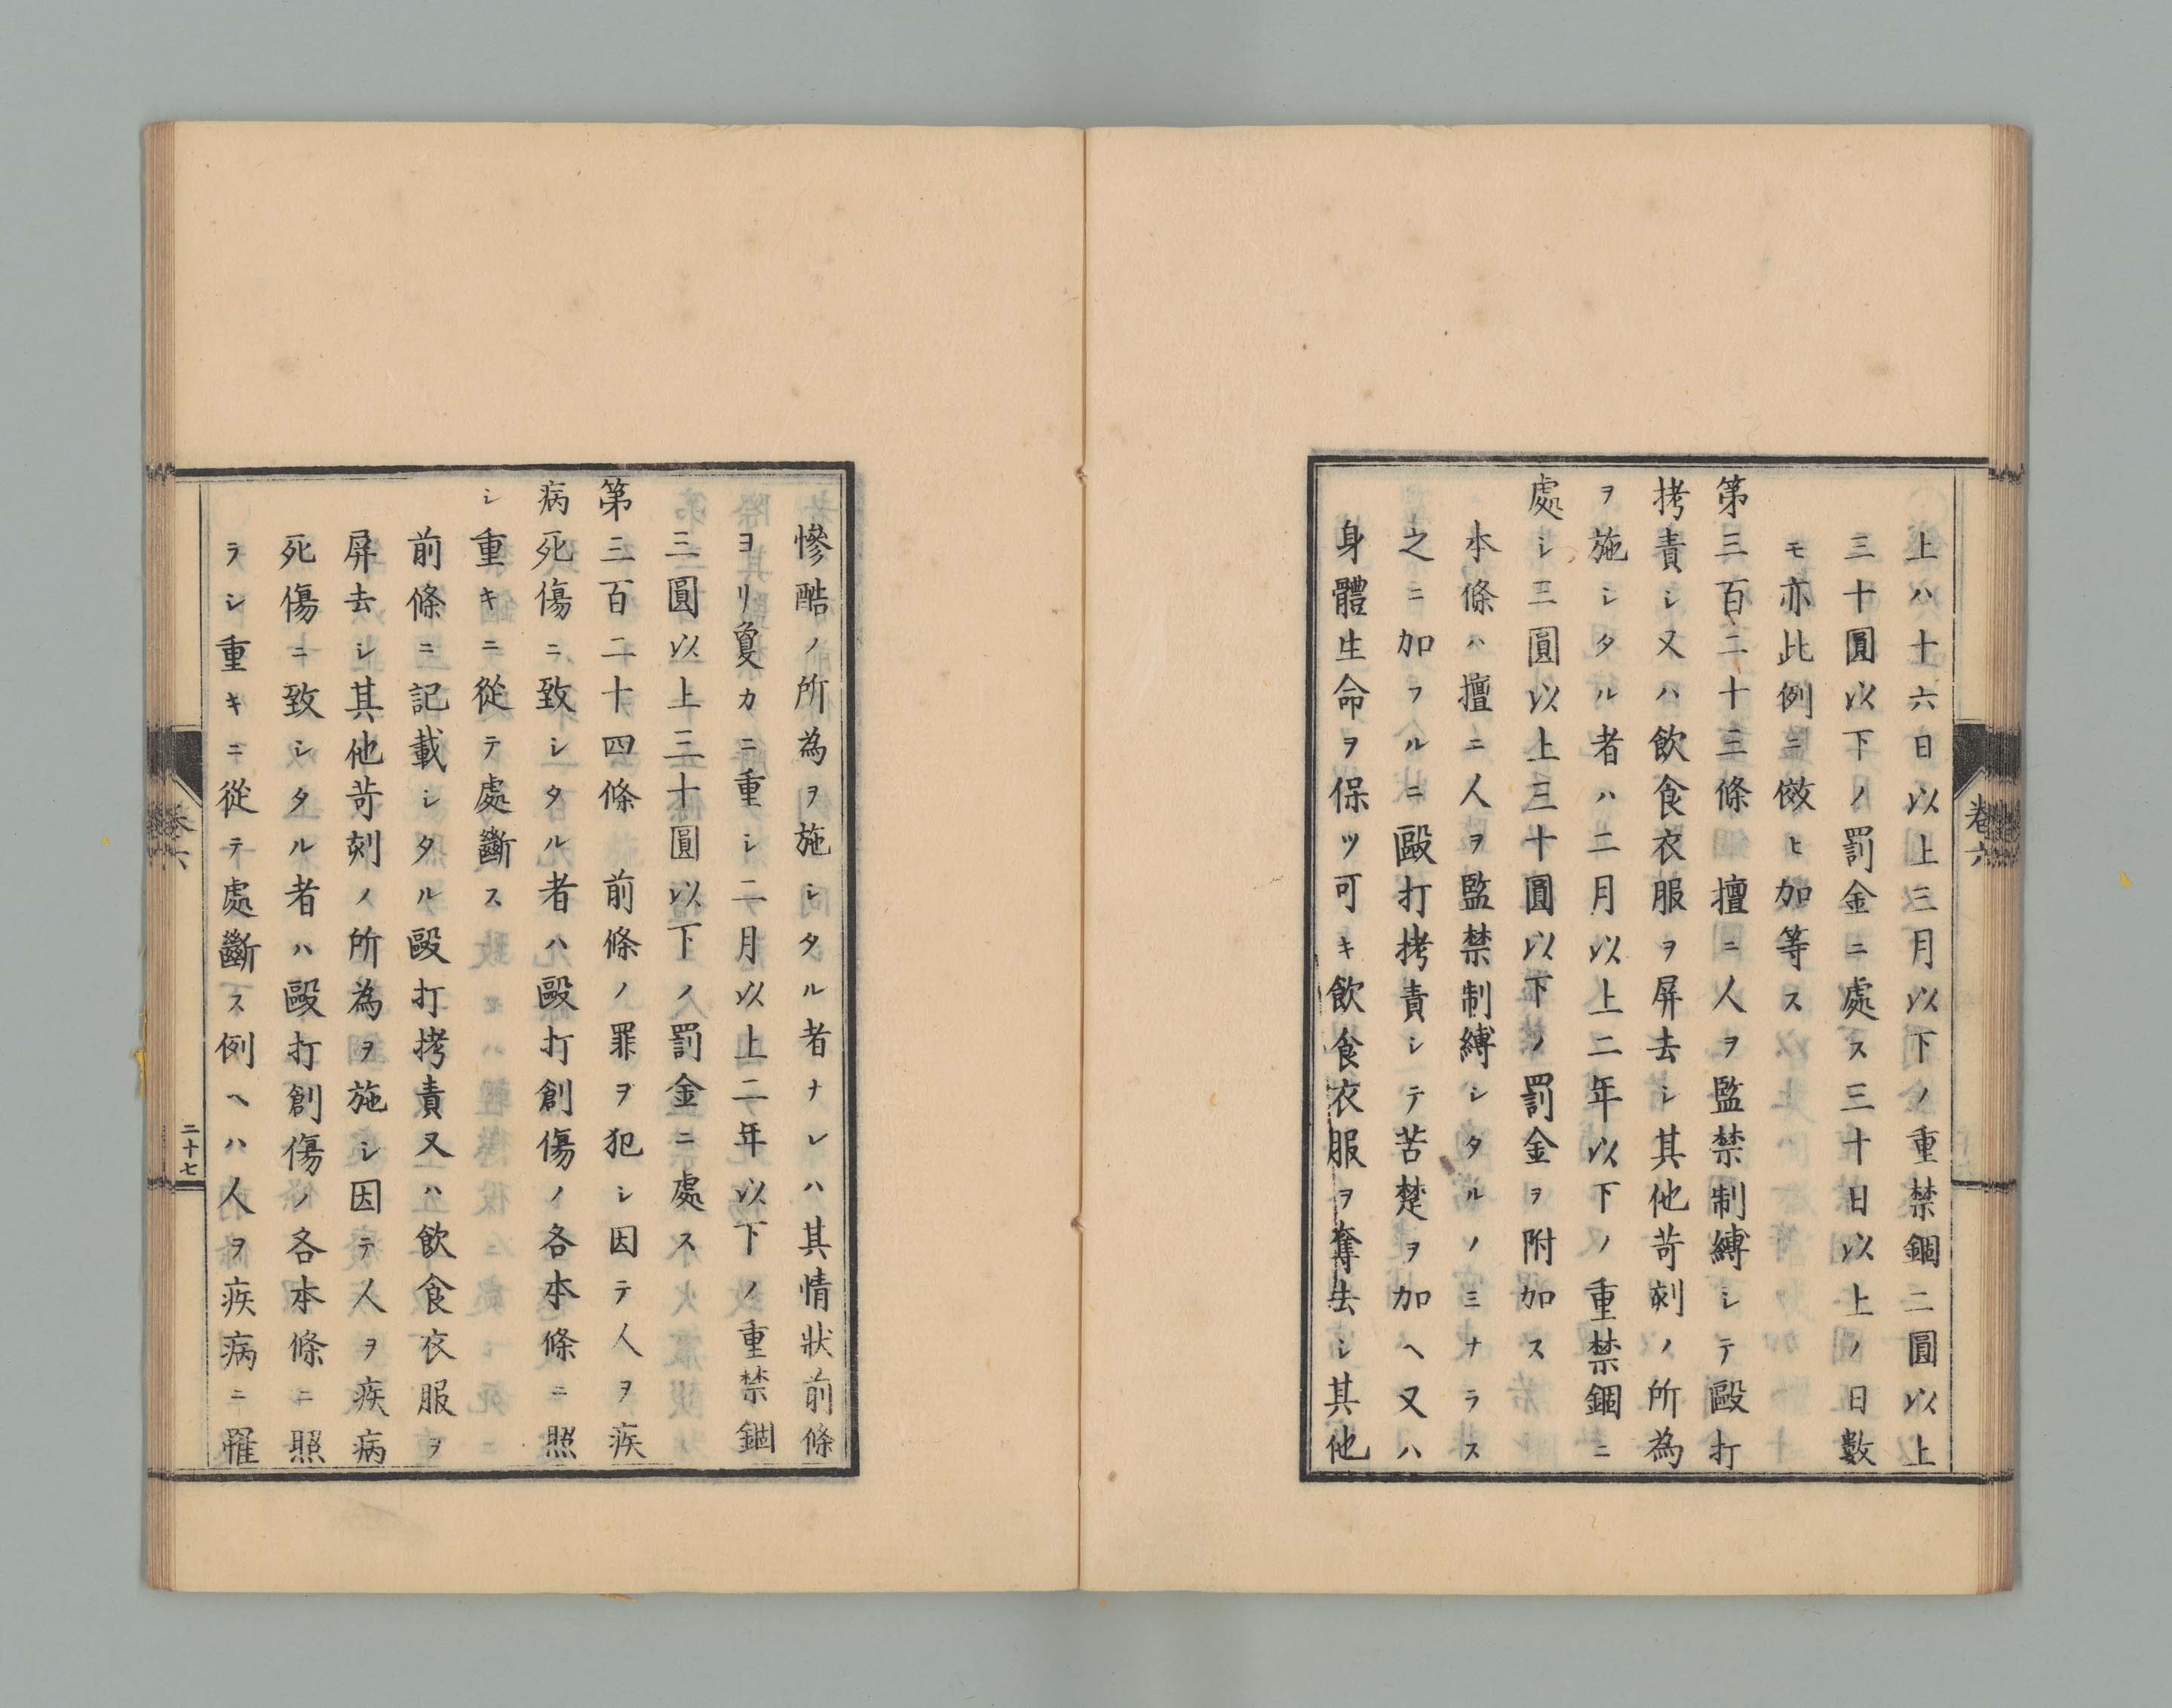 上ハ十六日以上三月以下ノ重禁錮二圓以上
三十圓以下ノ罰金ニ處ス三十日以上ノ日數
モ亦此例ニ傚ヒ加等ス
第三百二十三條 擅ニ人ヲ監禁制縛シテ毆打
拷責シ又ハ飲食衣服ヲ屏去シ其他苛刻ノ所為
ヲ施シタル者ハ二月以上二年以下ノ重禁錮ニ
處シ三圓以上三十圓以下ノ罰金ヲ附加ス
本條ハ擅ニ人ヲ監禁制縛シタルノミナラス
之ニ加フルニ毆打拷責シテ苦楚ヲ加ヘ又ハ
身體生命ヲ保ツ可キ飲食衣服ヲ奪去シ其他
卷六
慘酷ノ所為ヲ施シタル者ナレハ其情状前條
ヨリ夐カニ重シ二月以上二年以下ノ重禁錮
三圓以上三十圓以下ノ罰金ニ處ス
第三百二十四條 前條ノ罪ヲ犯シ因テ人ヲ疾
病死傷ニ致シタル者ハ毆打創傷ノ各本條ニ照
シ重キニ從テ處斷ス
前條ニ記載シタル毆打拷責又ハ飲食衣服ヲ
屏去シ其他苛刻ノ所為ヲ施シ因テ人ヲ疾病
死傷ニ致シタル者ハ毆打創傷ノ各本條ニ照
ラシ重キニ從テ處斷ス例ヘハ人ヲ疾病ニ罹
卷六
二十七